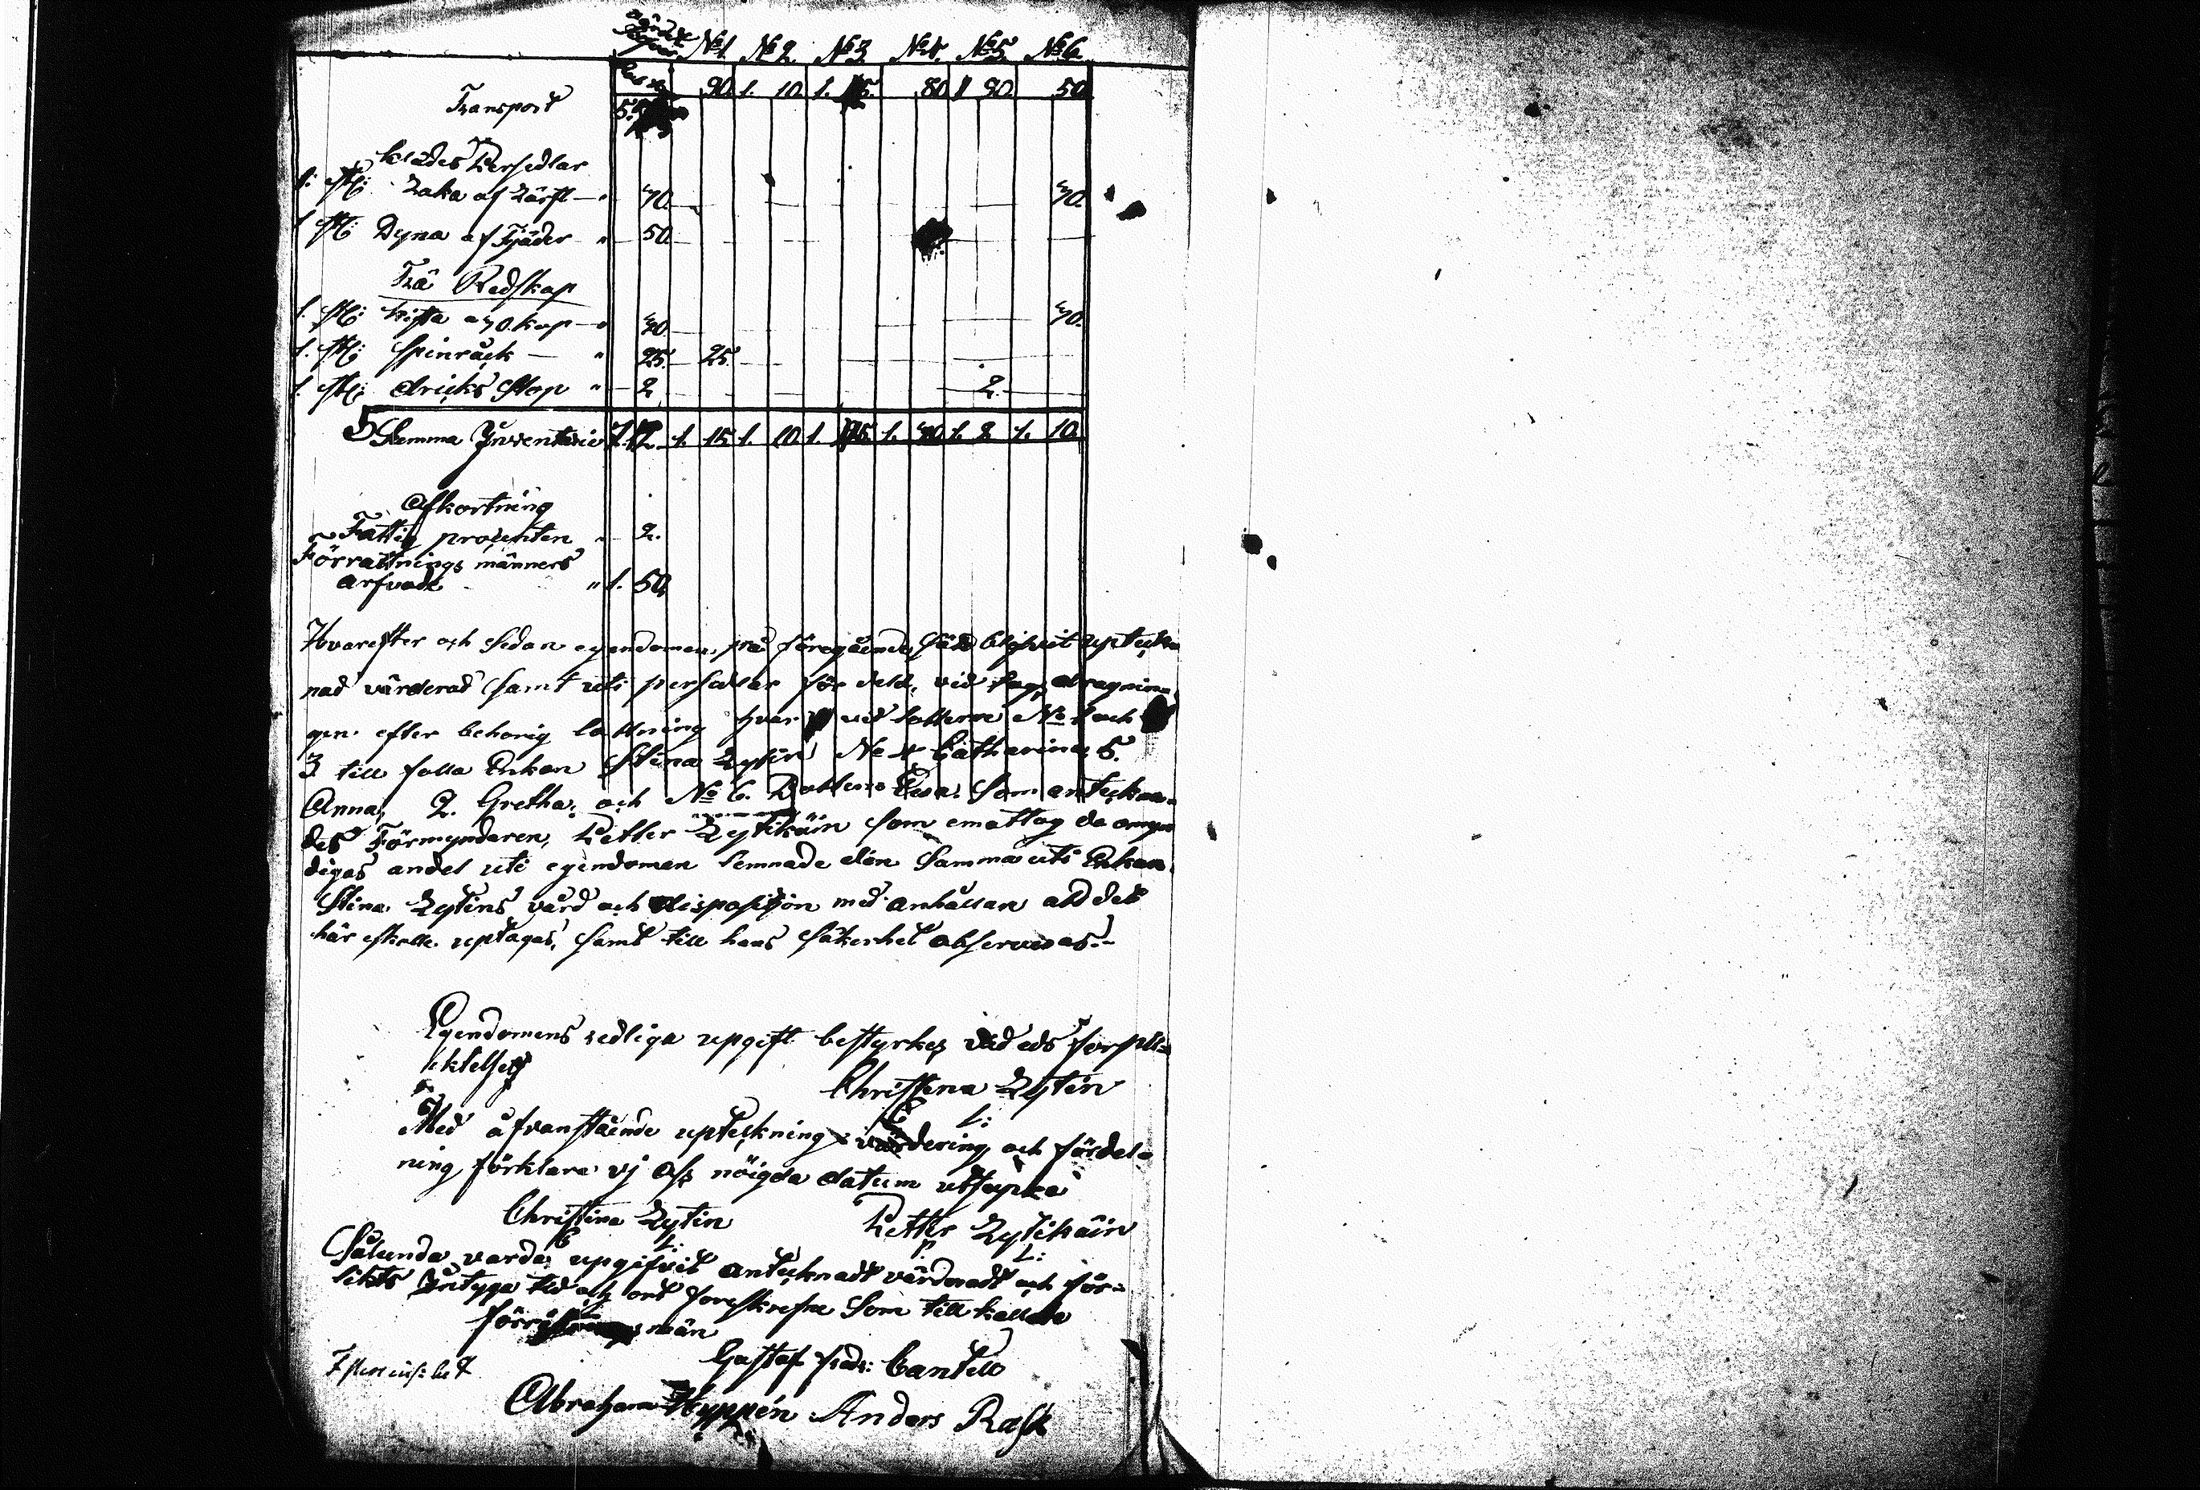 No 1. No 2. No 3. No 4. No 5. No 6.
Transport 90 1. 10 1. 80 90 50
klädes Persedlar
1. St: af 70. 70.
1 St: Dyna af Fjäder " 50
Trä Redskap
1. St: kista 70. kap " 70 70.
1. St: Spinråck " 25. 25.
1. St: dricks Stop " 2 2.
Summa Inventarie 1. 15 1. 10 1. 1. 1. 2 1. 10
Afkortning
Fattig procenten " 2.
Förrättnings männers
arfvode " 1. 50
Hvarefter och Sedan egendomen, på föregående sätt blifvit upteck
nad värderad samt uti persedlar för deld, vid
gen efter behörig lottning hvar vid lotterne No och
3 till falla Enkan Stina Zytin No 4 Catharina, 5.
Anna, 2. Gretha, och No 6. Dottern Eva. Som
des Förmyndaren, Petter Zytikäin som emottog de omyn
digas andel uti egendomen lemnade den Samma uti Enkan
Stina Zytins vård och disposition med anhållan att det
här skulle uptagas, samt till hans Säkerhet observeras.
Egendomens redliga upgift bestyrkes vid eds förpli=
ktelse
Christina Zytin
Med åfvanstående upteckning värdering och fördel=
ning förklara vj oss nöigda datum utsupra
Christina Zytin Petter Zytikäin
Sålunda vardet upgifvit antecknadt värderadt och för=
intyga tid och ort föreskrefne Som till kallade
män
Gustaf Cantell
Abraham Hyppén Anders Rask